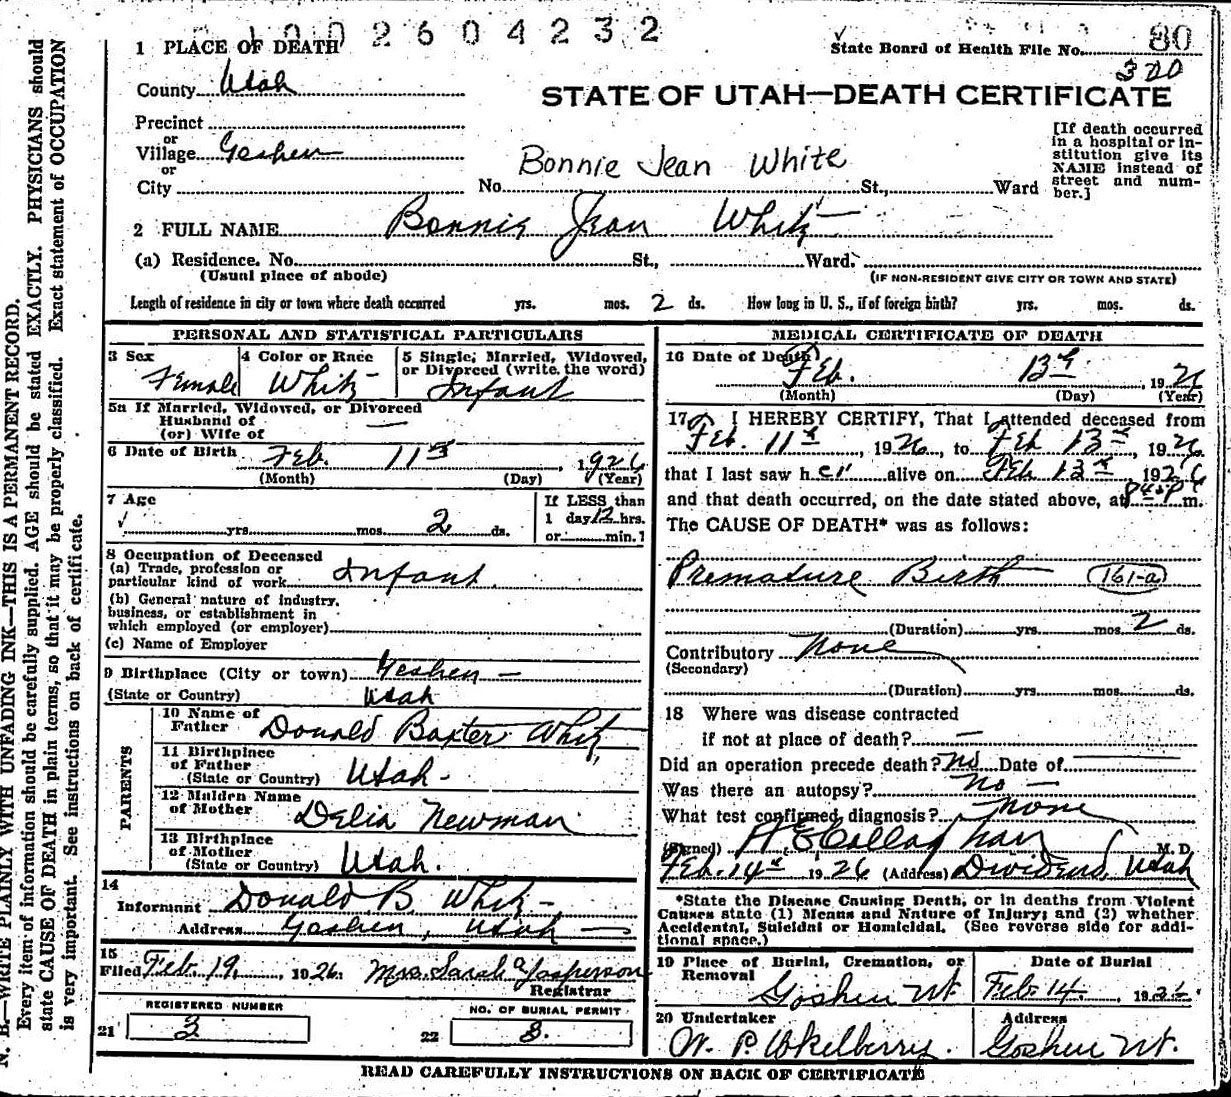 1002604232
1 PLACE OF DEATH
State Board of Health File No. 80
300
County Utah
STATE OF UTAH—DEATH CERTIFICATE
Precinct
or
Village Goshen
or
City No. St., Ward
Bonnie Jean White
[If death occurred
in a hospital or in-
stitution give its
NAME instead of
street and num-
ber.]
2 FULL NAME Bonnie Jean White
(a) Residence. No. St., Ward.
(Usual place of abode) (IF NON-RESIDENT GIVE CITY OR TOWN AND STATE)
Length of residence in city or town where death occurred yrs. mos. 2 ds. How long in U. S., if of foreign birth? yrs. mos. ds.
PERSONAL AND STATISTICAL PARTICULARS
3 Sex Female
4 Color or Race White
5 Single, Married, Widowed,
or Divorced (write the word)
Infant
5a If Married, Widowed, or Divorced
Husband of
(or) Wife of —
6 Date of Birth Feb. 11th, 1926
(Month) (Day) (Year)
7 Age
yrs. mos. 2 ds.
If LESS than
1 day 12 hrs.
or min.?
8 Occupation of Deceased
(a) Trade, profession or
particular kind of work Infant
(b) General nature of industry,
business, or establishment in
which employed (or employer)
(c) Name of Employer
9 Birthplace (City or town) Goshen —
(State or Country) Utah
PARENTS
10 Name of
Father Donald Baxter White
11 Birthplace
of Father
(State or Country) Utah -
12 Maiden Name
of Mother Delia Newman
13 Birthplace
of Mother
(State or Country) Utah.
14
Informant Donald B. White -
Address Goshen, Utah —
15
Filed Feb. 19, 1926. Mrs. Sarah a Jasperson
Registrar
REGISTERED NUMBER
21 3
NO. OF BURIAL PERMIT
22 3.
MEDICAL CERTIFICATE OF DEATH
16 Date of Death
Feb. 13th, 1926
(Month) (Day) (Year)
17 I HEREBY CERTIFY, That I attended deceased from
Feb. 11th, 1926, to Feb 13th, 1926
that I last saw her alive on Feb 13th 1926
and that death occurred, on the date stated above, at m.
The CAUSE OF DEATH* was as follows:
Premature Birth 161-a
(Duration) yrs. mos. 2 ds.
Contributory None
(Secondary)
(Duration) yrs. mos. ds.
18 Where was disease contracted
if not at place of death? —
Did an operation precede death? no Date of —
Was there an autopsy? No —
What test confirmed diagnosis? None
(Signed) H E Callaghan M. D.
Feb. 14th 1926 (Address) Dividend, Utah
*State the Disease Causing Death, or in deaths from Violent
Causes state (1) Means and Nature of Injury; and (2) whether
Accidental, Suicidal or Homicidal. (See reverse side for addi-
tional space.)
19 Place of Burial, Cremation, or
Removal
Goshen Ut
Date of Burial
Feb. 14, 1926
20 Undertaker
Address
Goshen Ut.
READ CAREFULLY INSTRUCTIONS ON BACK OF CERTIFICATE
N. B.—WRITE PLAINLY WITH UNFADING INK—THIS IS A PERMANENT RECORD.
Every item of information should be carefully supplied. AGE should be stated EXACTLY. PHYSICIANS should
state CAUSE OF DEATH in plain terms, so that it may be properly classified. Exact statement of OCCUPATION
is very important. See instructions on back of certificate.